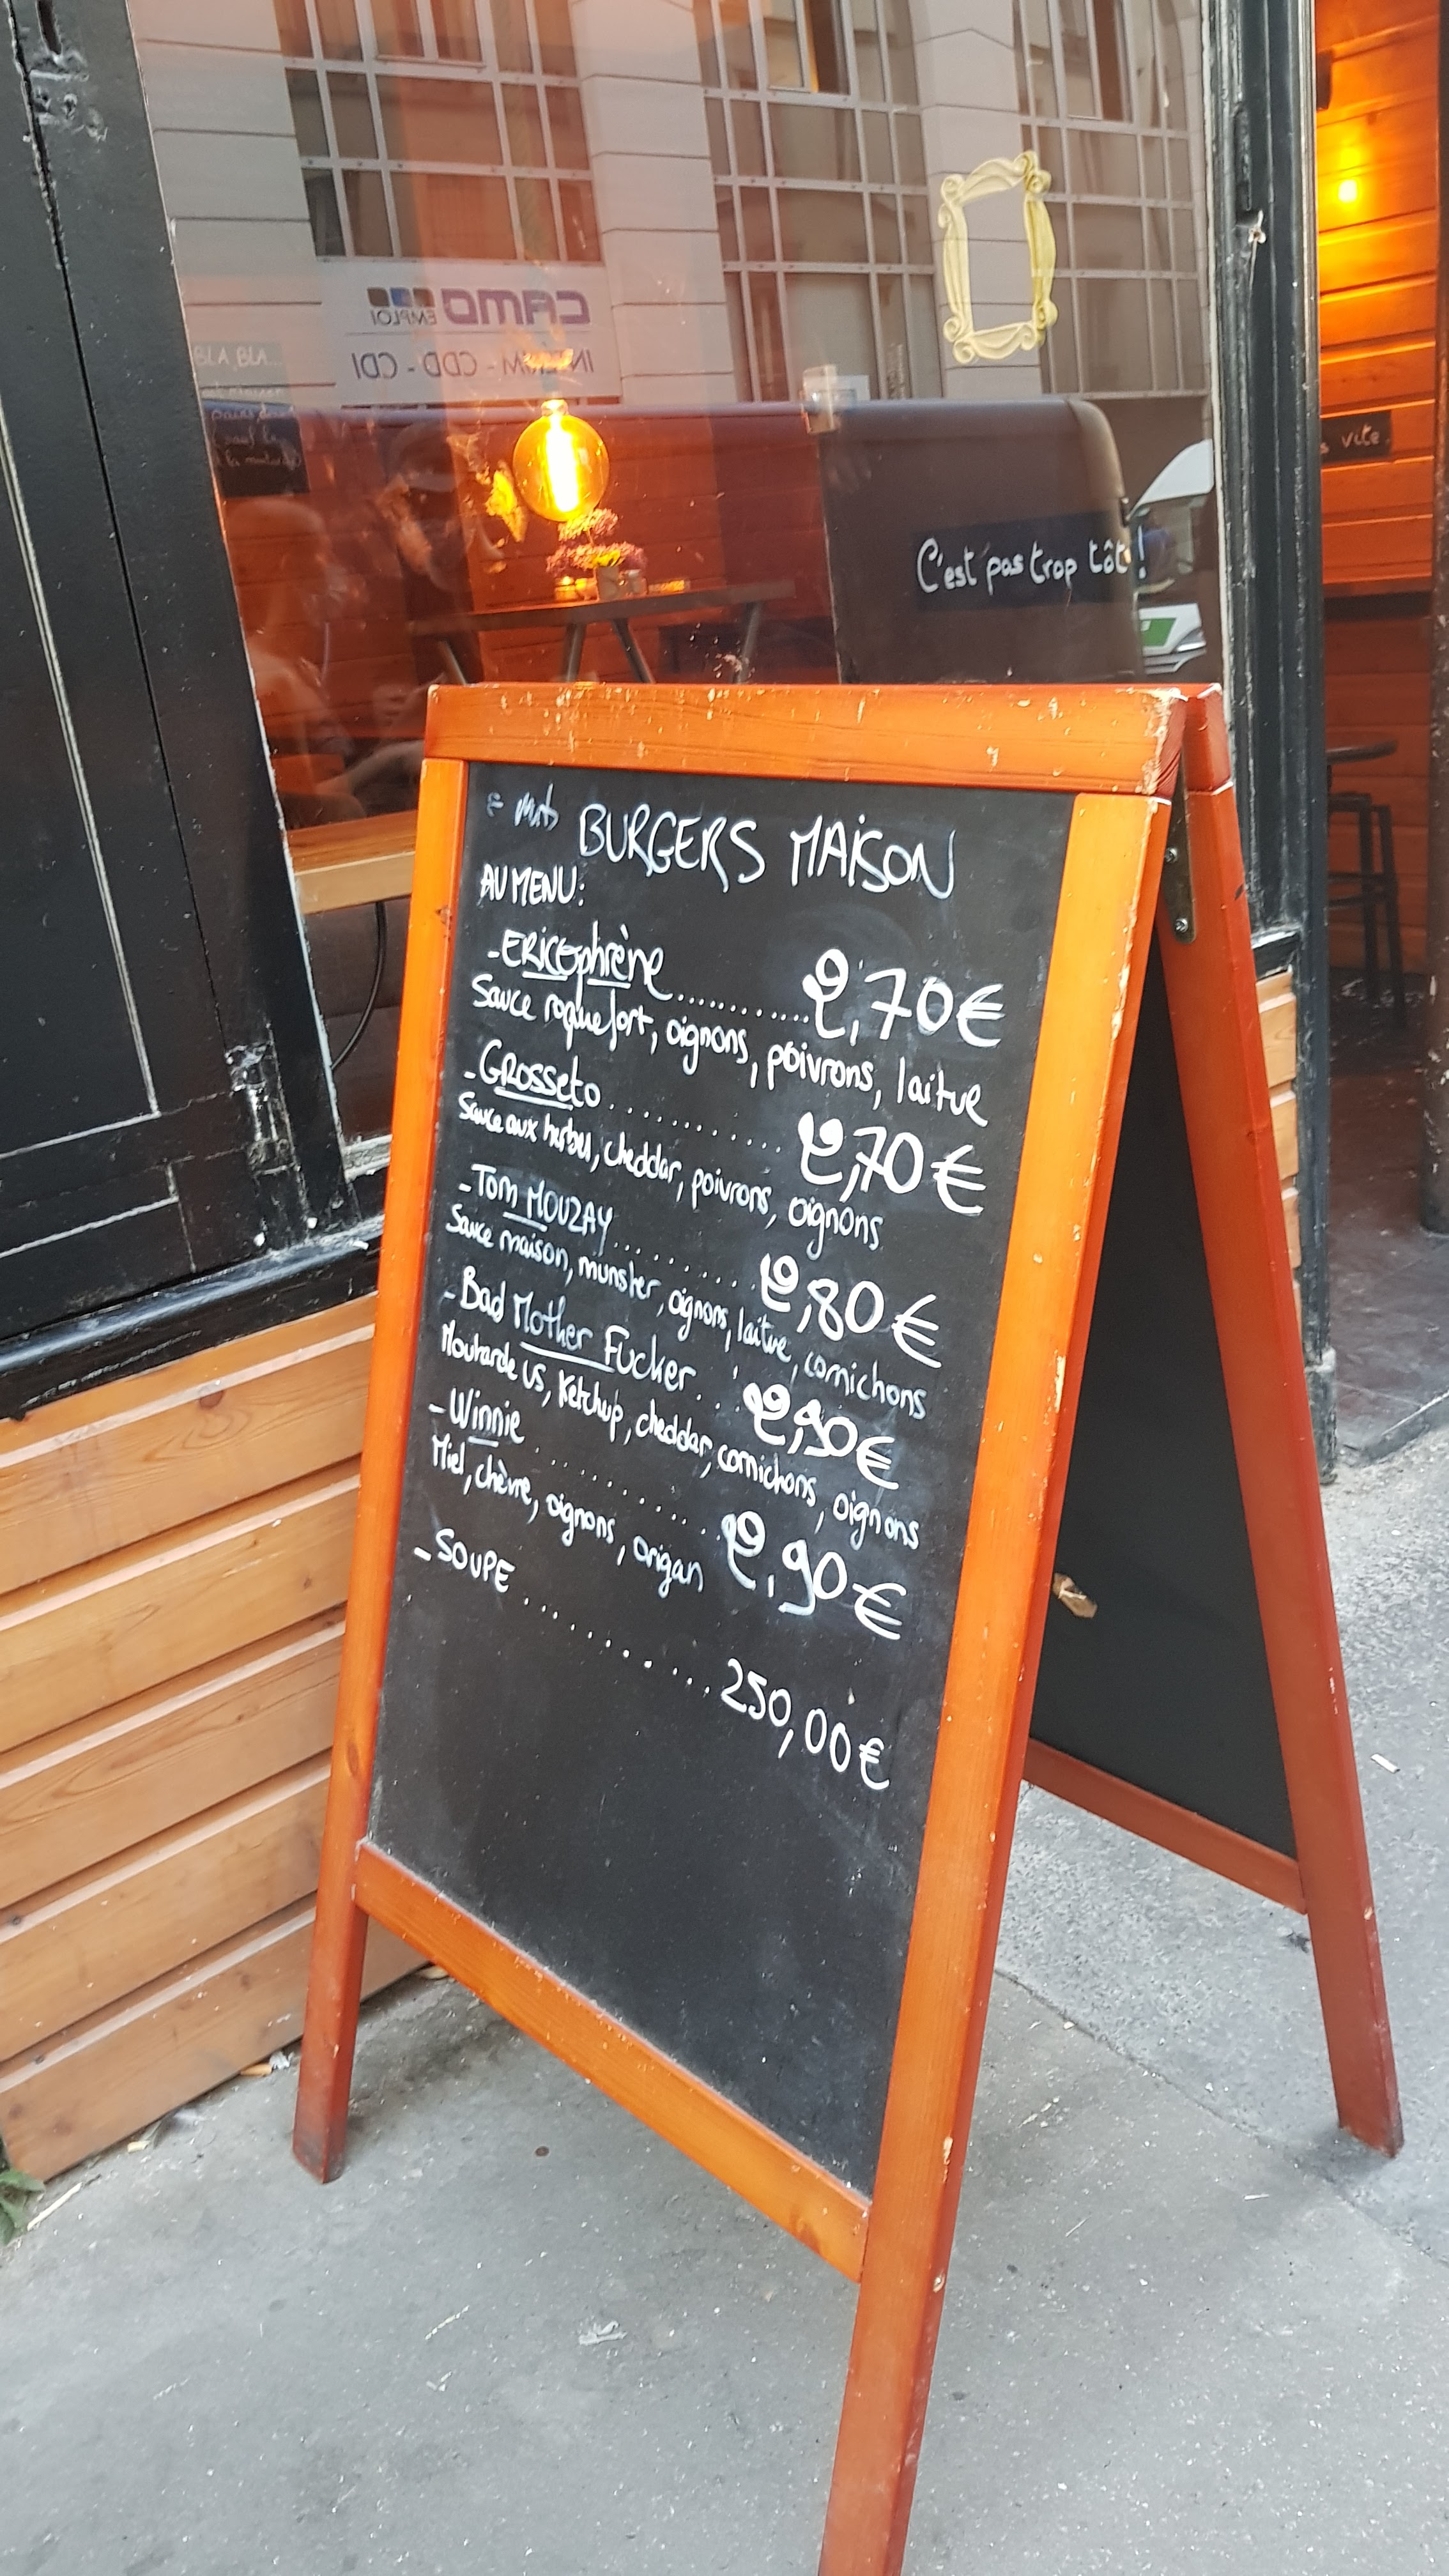 CAMO EMPLOI
INTERIM - CDD - CDI
BLA BLA...
vite.
C'est pas trop tôt !
BURGERS MAISON
AU MENU:
- ERICOphrène............2,70€
Sauce roquefort, oignons, poivrons, laitue
- GROSSETO............2,70€
Sauce aux herbes, cheddar, poivrons, oignons
- Tom MOUZAY............2,80€
Sauce maison, munster, oignons, laitue, cornichons
- Bad Mother Fucker....2,90€
Moutarde US, Ketchup, cheddar, cornichons, oignons
- Winnie............2,90€
Miel, chèvre, oignons, origan
- SOUPE............250,00€